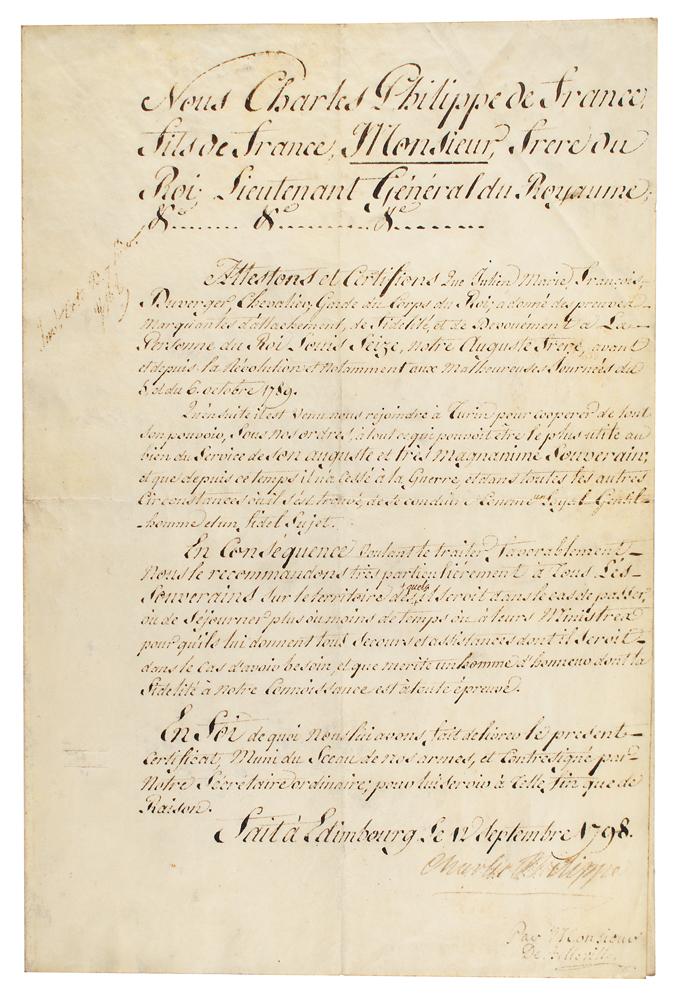 Nous Charles Philippe de France,
Fils de France, Monsieur, Frere du
Roi, Lieutenant Général du Royaume,
&c........ &c........ &c........
Attestons et Certifions Que Julien Marie, François,
Duverger, Chevalier, Garde du Corps du Roi, a donné des preuves
marquantes d'attachement, de Fidelité, et de Devouëment a La
Personne du Roi Louis Seize, notre Auguste Frere, avant
et depuis la Révolution et notamment aux Malheureuses Journées du
5, et du 6. octobre 1789.
Qu'ensuite il est venu nous rejoindre à Turin pour cooperer de tout
son pouvoir, sous nos ordres, à tout ce qui pouvoit être le plus utile au
bien du Service de son auguste et très magnanime Souverain,
et que depuis ce temps il n'a cessé à la Guerre, et dans toutes les autres
Circonstances où il s'est trouvé, de se conduire comme un Loyal Gentil-
-homme et un fidel Sujet.
En Conséquence Voulant le traiter favorablement
Nous le recommandons très particulièrement à Tous Les
Souverains sur le territoire desquels il seroit dans le cas de passer,
ou de Séjourner plus ou moins de temps ou à leurs Ministres
pour qu'ils lui donnent tous Secours et assistances dont il Seroit
dans le Cas d'avoir besoin, et que merite un homme d'honneur dont la
Fidelité à notre Connoissance est à toute épreuve.
En Foi de quoi nous lui avons fait delivrer le present
Certificat, Muni du Sceau de nos armes, et Contresigné par
Notre Sécrétaire ordinaire, pour lui servir à Telle fin que de
Raison.
Fait à Edimbourg le 12 Septembre 1798.
Charles Philippe
Par Monsieur